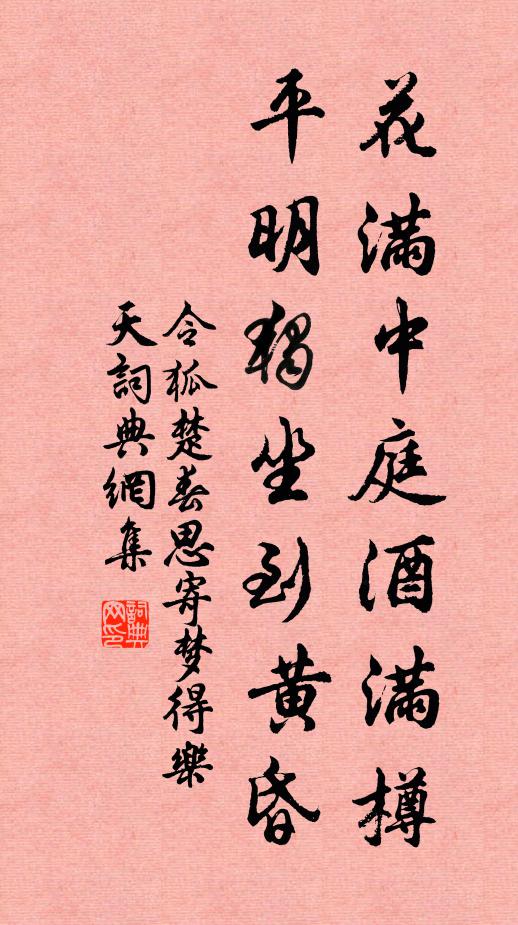 花滿中庭酒滿樽
平明獨坐到黃昏
令狐楚春思寄梦得樂
天詞典網集
詞典
网印